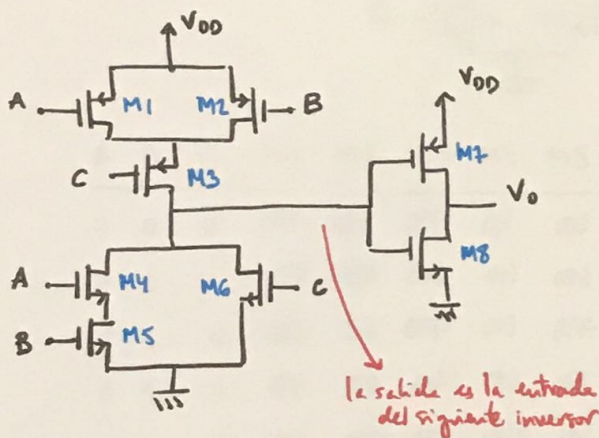 VDD
A M1 M2 B
VDD
C M3
M7
Vo
A M4 M6 C
M8
B M5
la salida es la entrada
del siguiente inversor